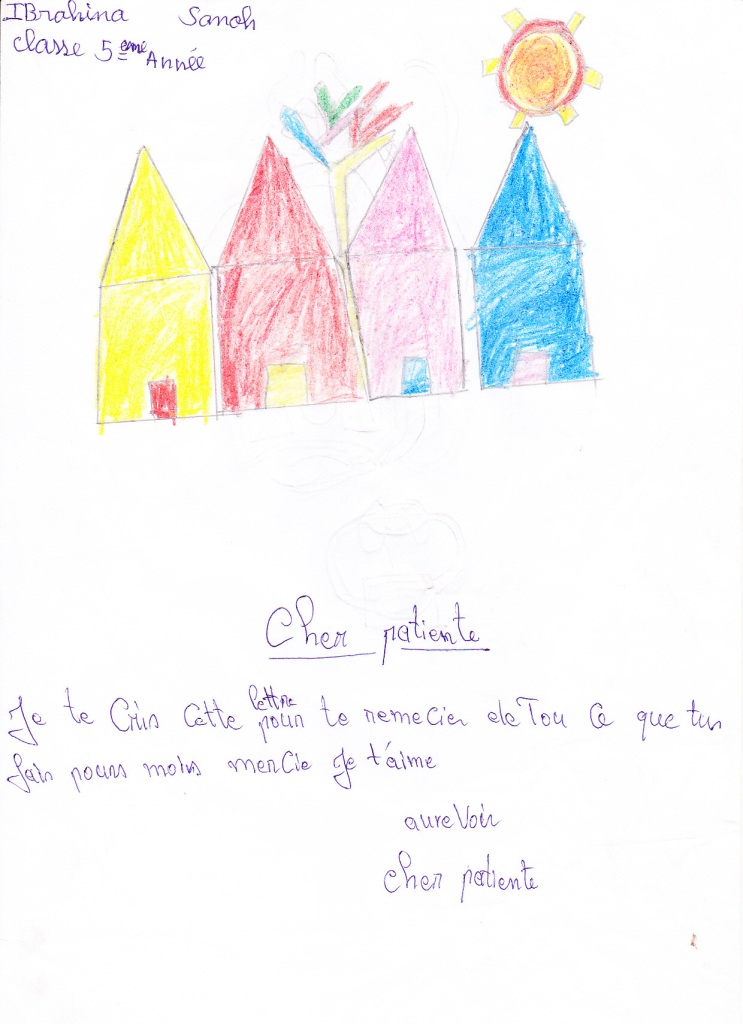 IBrahina Sanoh
Classe 5 eme Année
Cher patiente
Je te Cris Cette lettre pour te remecier de Tou Ce que tu
fais pours moins mercie Je t'aime
aureVoir
Cher patiente